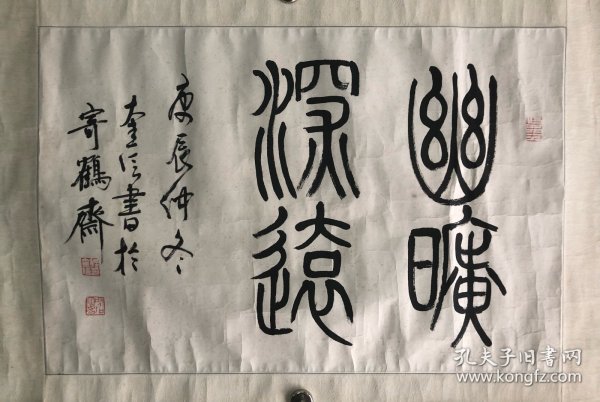 幽曠
深遠
庚辰仲冬
奎信書於
寄鶴齋
孔夫子旧书网
www.kongfz.com